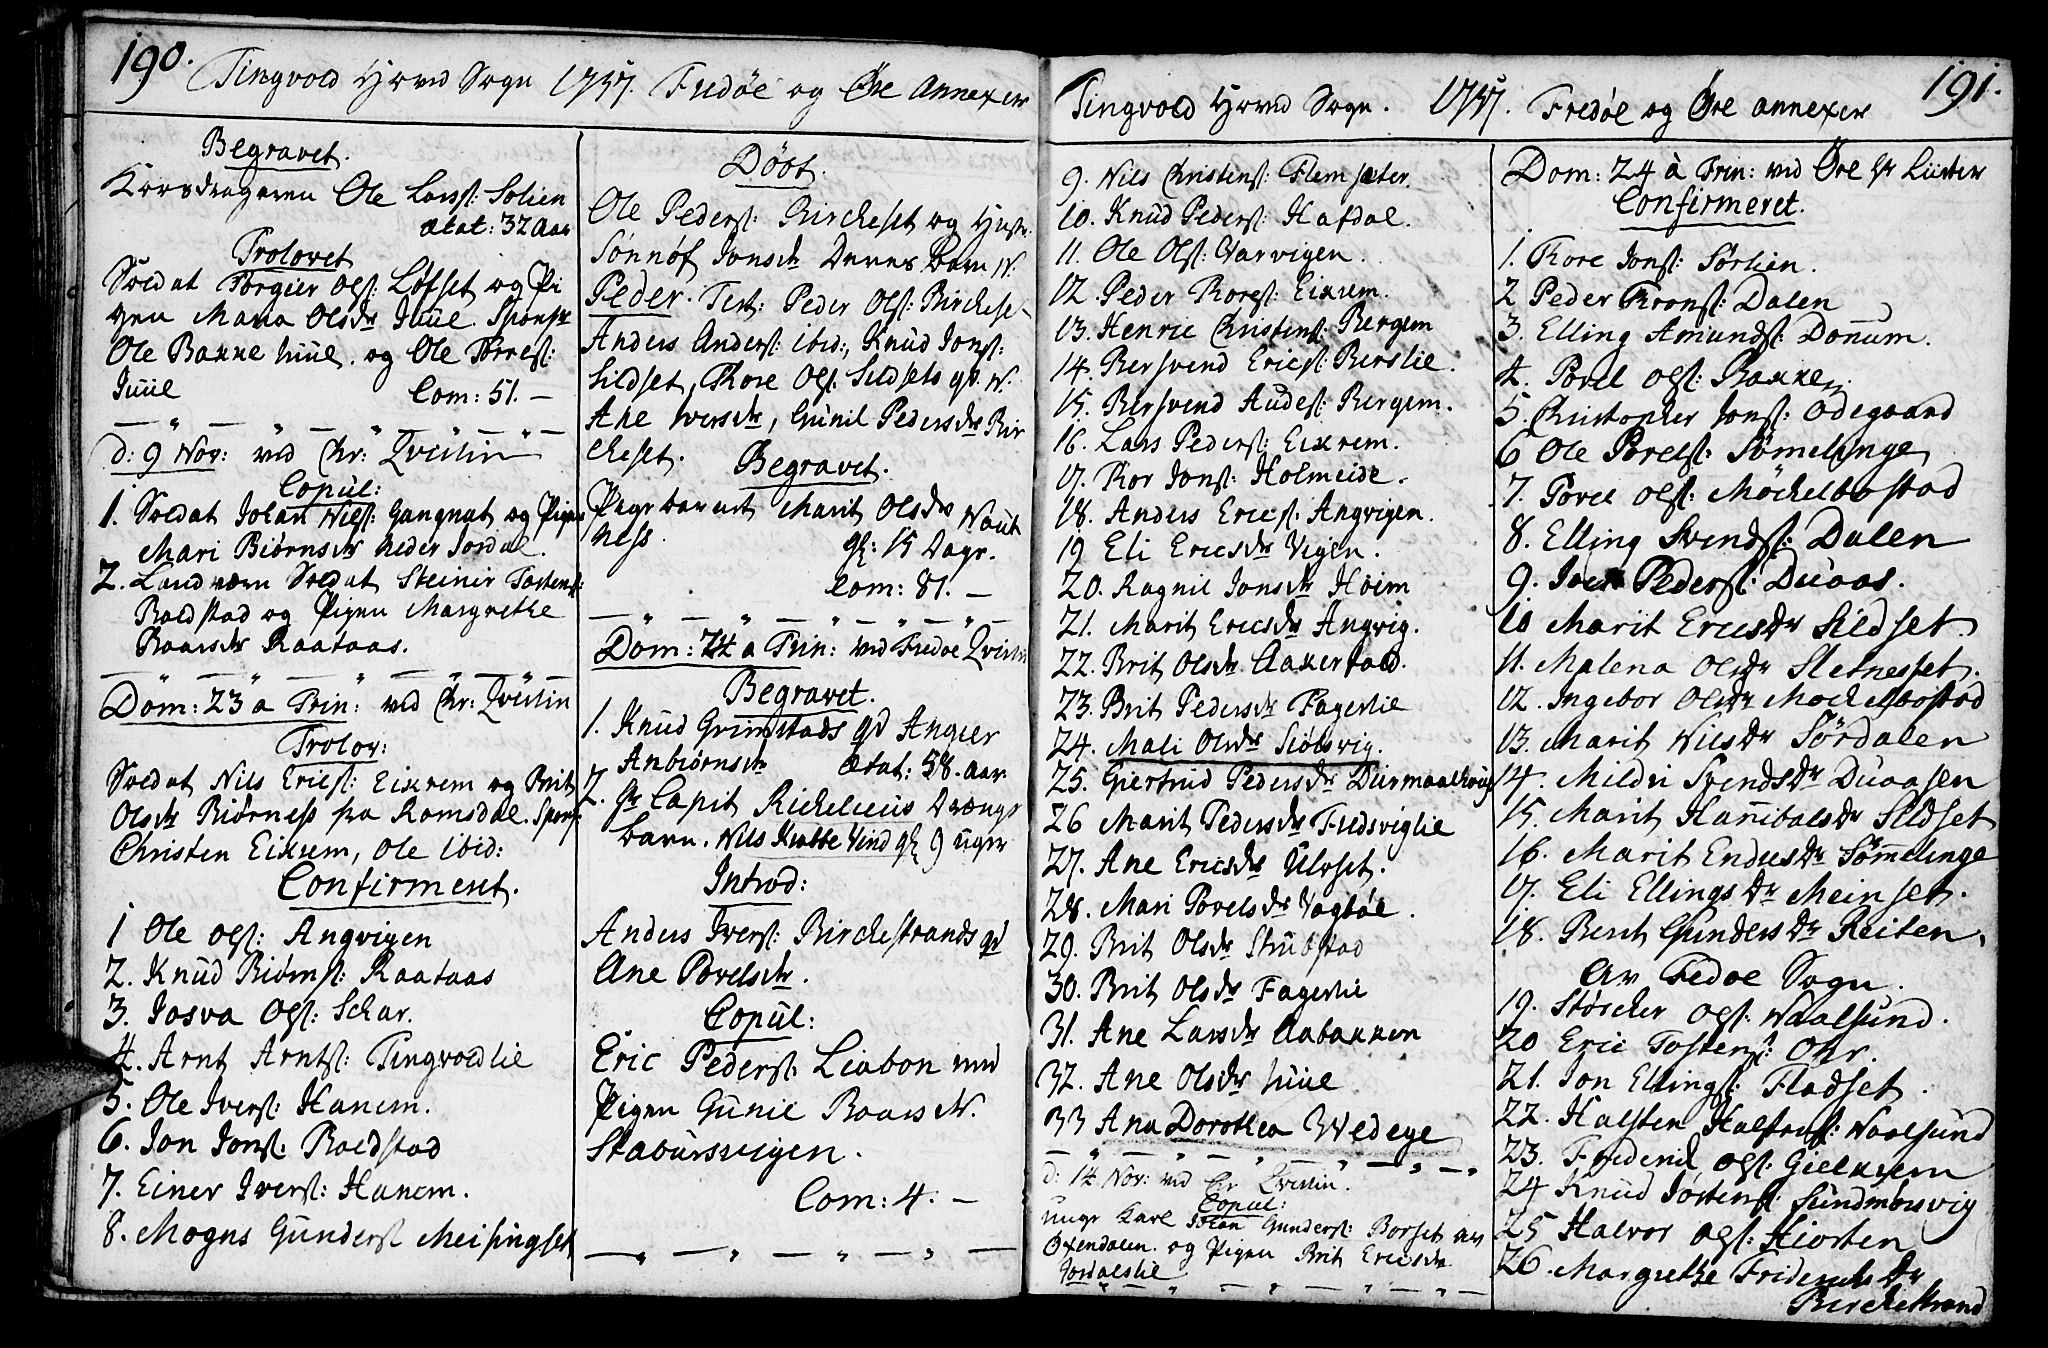 190. Tingvold Hoved Sogn 1757. Fredøe og Øre Annexer
Begravet.
Korsdrageren Ole Larss: Solien
ætat: 32 aar
Trolovet
Soldat Torgier Ols: Løfset og Pi
gen Maria Olsdr Juul. Spons:
Ole Bakke Juul. og Ole Torres:
Juul Com: 51. —
d: 9 Nov: ved Chr: Qvistin
Copul:
1. Soldat Johan Nils: Gangnat og Pigen
Mari Biørnsdr neder Jordal.
2. Landværn Soldat Steinir Tostens:
Roldstad og Pigen Margrethe
Roarsdr Raataas.
Dom: 23 a Trin: ved Chr: Qvistin
Trolov:
Soldat Nils Erics: Eikrem og Brit
Olsdr Biørness fra Romsdal. Spons:
Christen Eikrem, Ole ibid:
Confirmeret.
1 Ole Ols: Angvigen
2. Knud Biørns: Raataas
3. Josva Ols: Schar.
4. Arnt Arnts: Tingvoldlie
5. Ole Ivers: Hanem.
6. Jon Jons: Roldstad
7. Einer Ivers: Hanem.
8. Mogns Gunders: Meisingset
Døbt.
Ole Peders: Bircheset og Hustr.
Sønnøf Jonsdr Deres Barn N.
Peder. Test: Peder Ols: Bircheset
Anders Anders: ibid:, Knud Jons:
Sildset, Thore Ols: Sildsets qv. N.
Ane Iversdr, Gunil Pedersdr Bir
cheset.
Begravet.
Pigebarnet Marit Olsdr Naut
ness. gl: 15 Dage.
Com: 81. —
Dom: 24 a Trin: ved Fredøe Qvistin
Begravet.
1. Knud Grimstads qv Angier
Anbiørnsdr Ætat: 58. aar
2. Hr Capit Richelieus Drænge
barn. Nils Krabbe Vind gl 9 uger
Introd:
Anders Ivers: Birchestrands qv
Ane Povelsdr.
Copul:
Eric Peders: Liabøen med
Pigen Gunil Roarsdr.
Stabursvigen.
Com: 4. —
Tingvold Hoved Sogn. 1757. Fredøe og Øre annexer 191.
9. Nils Christens: Flemsæter.
10. Knud Peders: Hafdal.
11. Ole Ols: Varvigen.
12. Peder Thores: Eikrem.
13. Henric Christens: Bergem
14. Bersvend Erics: Berslie.
15. Bersvend Audes: Bergem.
16. Lars Peders: Eikrem.
17. Thor Jons: Holmeide.
18. Anders Erics: Angvigen.
19 Eli Ericsdr Vigen.
20. Ragnil Jonsdr Høim
21. Marit Ericsdr Angvig.
22. Brit Olsdr Aakerfald.
23. Brit Pedersdr Fagerlie
24. Mali Olsdr Siølsvig.
25. Giertrud Pedersdr Durmaalhoug
26 Marit Pedersdr Fredsviglie
27. Ane Ericsdr Ulvset.
28. Mari Povelsdr Vagbøe.
29. Brit Olsdr Strubstad
30. Brit Olsdr Fagerlie
31. Ane Larsdr Aabakken
32. Ane Olsdr Juul
33 Ana Dorothea Wedege
d: 14 Nov: ved Chr Qvistin.
Copul:
unge Karl Johan Gunders: Borset av
Øxendalen. og Pigen Brit Ericsdr
Jordalslie
Dom: 24 à Trin: ved Øre Hr Lüster
Confirmeret.
1. Thore Jons: Sørlien.
2 Peder Throns: Dalen
3. Elling Amunds: Donum.
4. Povel Ols: Bakken.
5. Christopher Jons: Odegaard
6 Ole Povels: Sømelinge
7. Povel Ols: Möchelbostad
8. Elling Svends: Dalen
9. Peders: Duaas.
10 Marit Ericsdr Sildset.
11. Malena Olsdr Sletnesset.
12. Ingebor Olsdr Mochelbostad
13. Marit Nilsdr Sørdalen
14. Mildri Svendsdr Duaasen
15. Marit Hanibalsdr Sildset
16. Marit Endresdr Sømelinge
17. Eli Ellingsdr Meinset.
18. Berit Gundersdr Reiten.
Av Fredoe Sogn.
19. Størcher Ols: Naalsund.
20 Eric Tostens: Ohr.
21. Jon Ellings: Fladset.
22. Halsten Halstens: Naalsund
23. Frideric Ols: Gielkrem
24 Knud Jøstens: Sundmørsvig
25 Halvor Ols: Hiorten
26. Margrethe Fridericksdr
Birchestrand